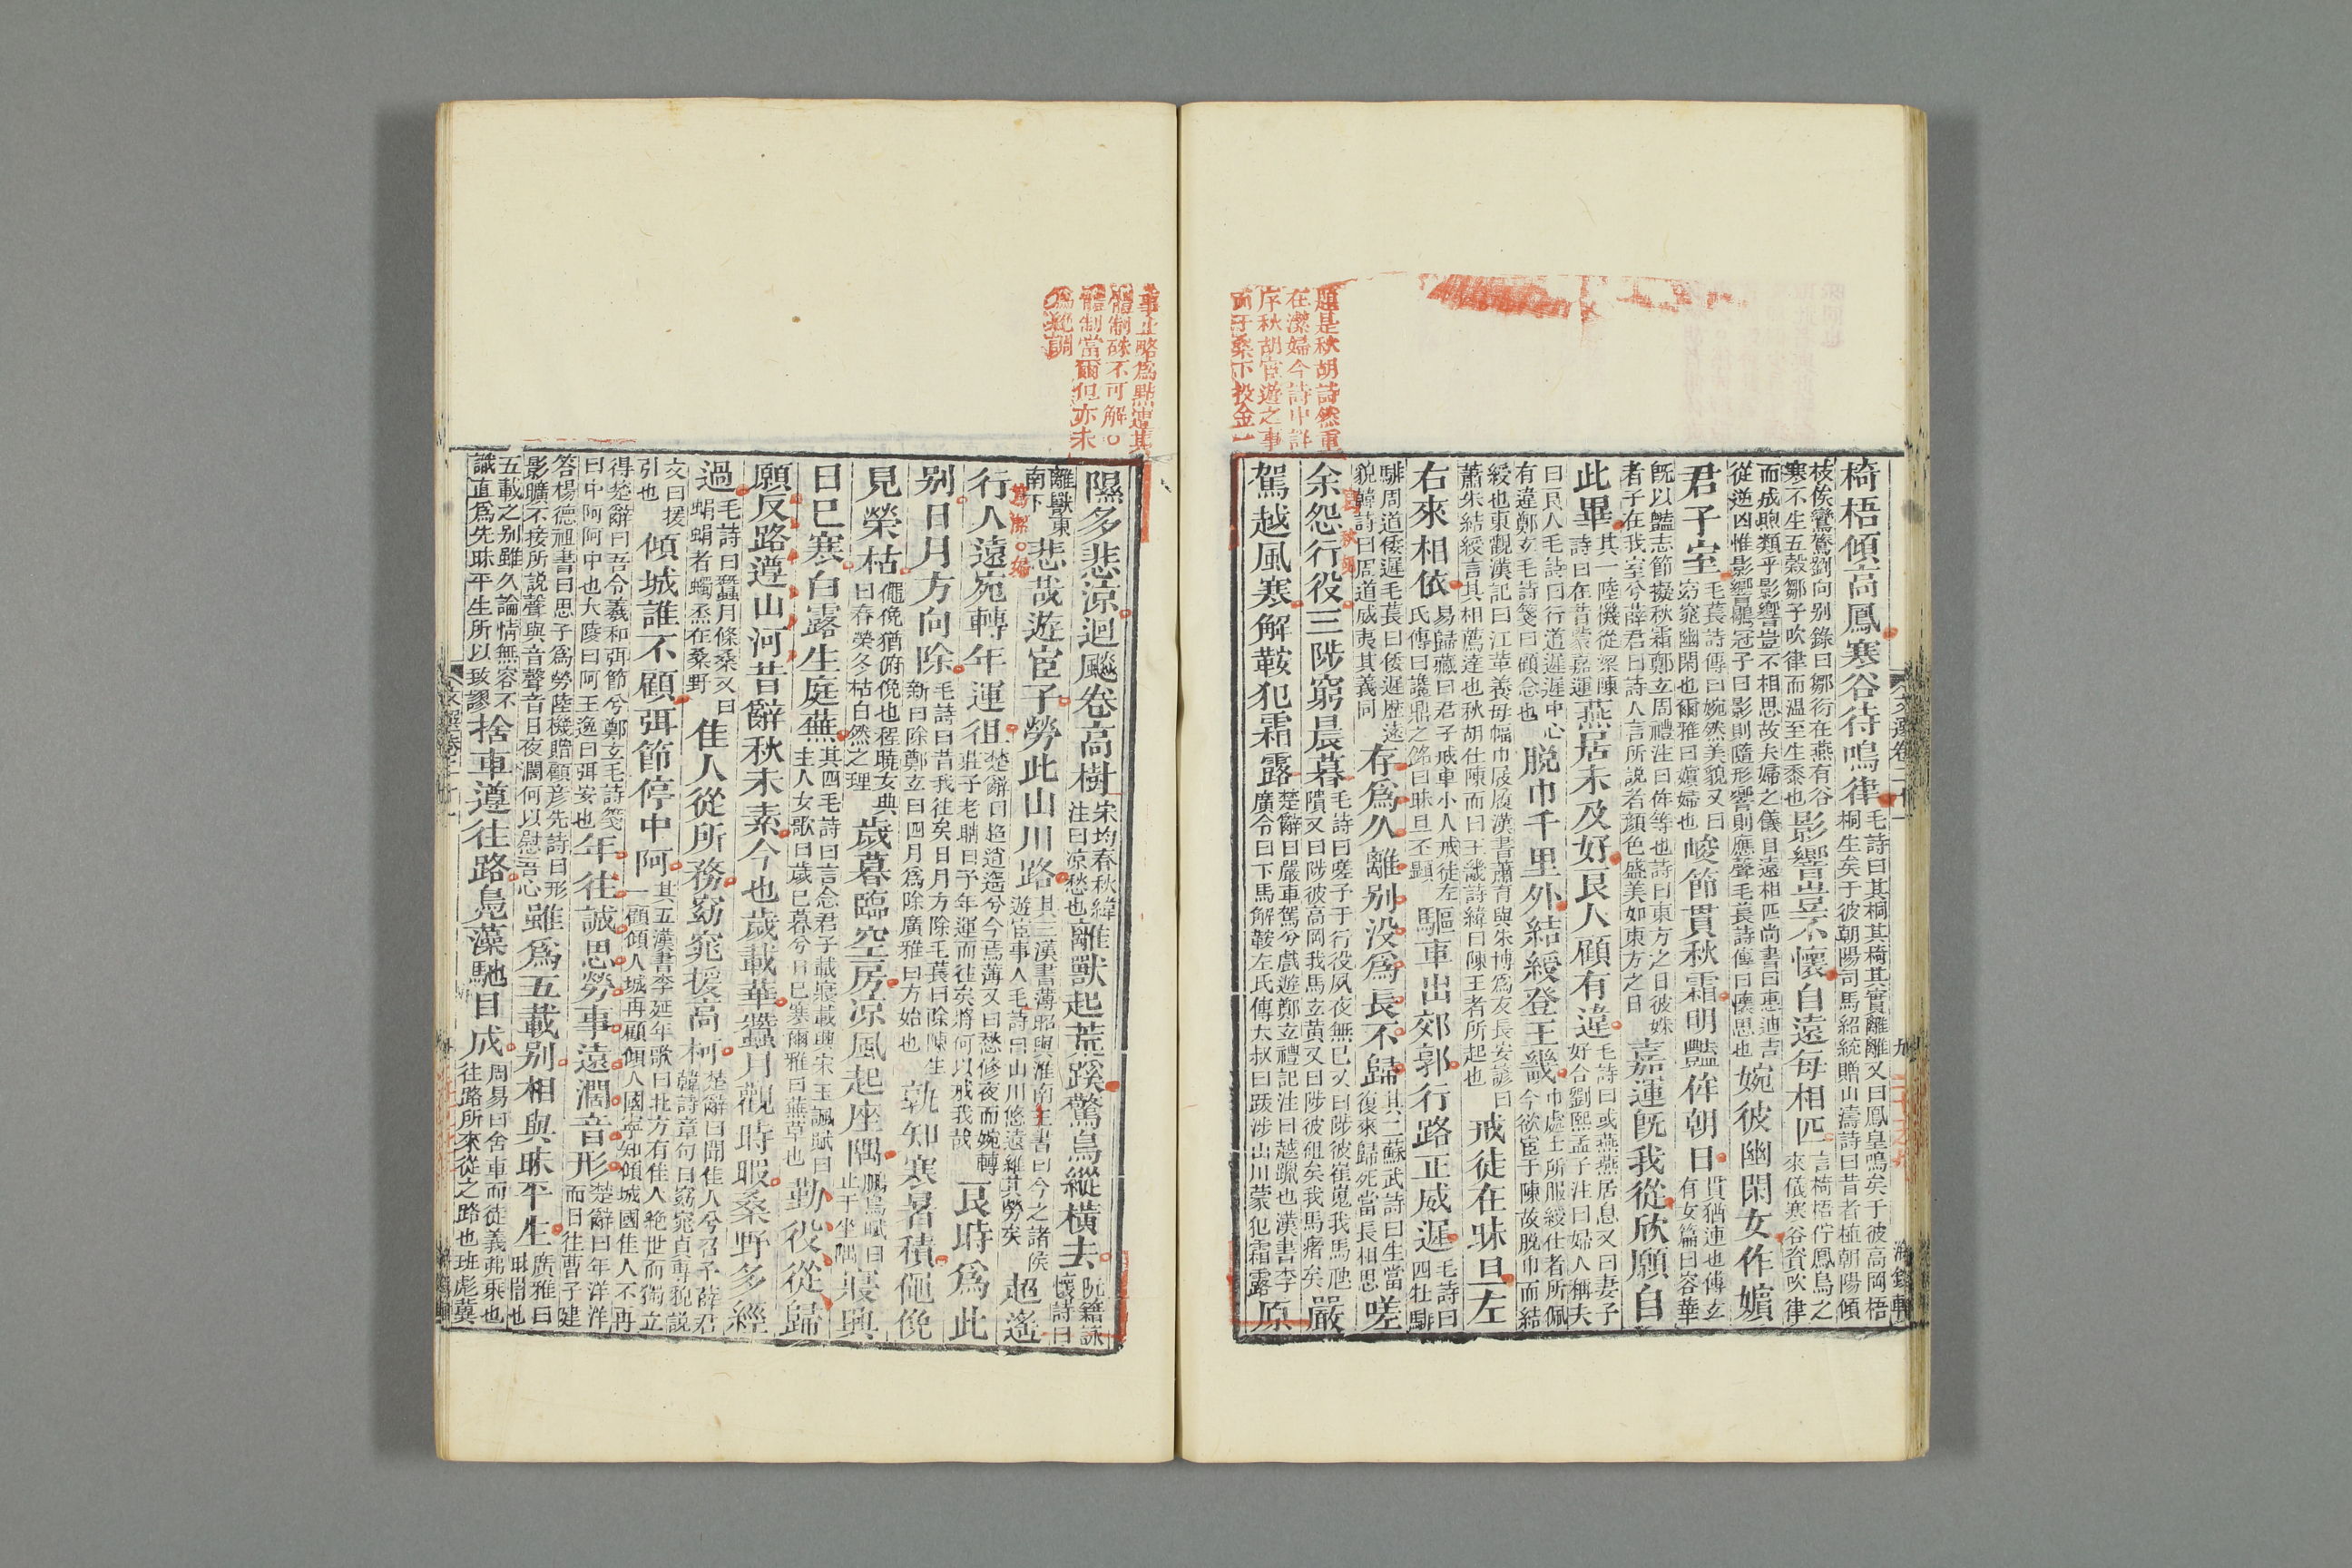 椅梧傾高鳳寒谷待鳴律毛詩曰其桐其椅其實離離又曰鳳皇鳴矣于彼高岡梧桐生矣于彼朝陽司馬紹統贈山濤詩曰昔者植朝陽傾
枝俟鸞鷟劉向别錄曰鄒衍在燕有谷寒不生五穀鄒子吹律而温至生黍也影響豈不懷自遠每相匹言椅梧佇鳳鳥之來儀寒谷資吹律
而成煦類乎影響豈不相思故夫婦之儀自遠相匹尚書曰惠迪吉從逆凶惟影響鶡冠子曰影則隨形響則應聲毛萇詩傳曰懷思也婉彼幽閑女作嬪
君子室毛萇詩傳曰婉然美貌又曰窈窕幽閑也爾雅曰嬪婦也峻節貫秋霜明豔侔朝日貫猶連也傅玄有女篇曰容華
旣以豔志節擬秋霜鄭玄周禮注曰侔等也詩曰東方之日彼姝者子在我室兮薛君曰詩人言所説者顔色盛美如東方之日嘉運旣我從欣願自
此畢其一陸機從梁陳詩曰在昔蒙嘉運燕居未及好良人顧有違毛詩曰或燕燕居息又曰妻子好合劉熙孟子注曰婦人稱夫
曰良人毛詩曰行道遲遲中心有違鄭玄毛詩箋曰顧念也脫巾千里外結綬登王畿巾處士所服綬仕者所佩今欲宦于陳故脫巾而結
綬也東觀漢記曰江革養母幅巾屐履漢書蕭育與朱博爲友長安諺曰蕭朱結綬言其相薦達也秋胡仕陳而曰王畿詩緯曰陳王者所起也戒徒在昧旦左
右來相依易歸藏曰君子戒車小人戒徒左氏傳曰讒鼎之銘曰昧旦丕顯驅車出郊郭行路正威遲毛詩曰四牡騑
騑周道倭遲毛萇曰倭遲歷遠貌韓詩曰周道威夷其義同存爲久離别没爲長不歸其二蘇武詩曰生當復來歸死當長相思嗟
余怨行役三陟窮晨暮毛詩曰嗟予子行役夙夜無已又曰陟彼崔嵬我馬虺隤又曰陟彼高岡我馬玄黃又曰陟彼砠矣我馬瘏矣嚴
駕越風寒解鞍犯霜露楚辭曰嚴車駕兮戲遊鄭玄禮記注曰越躐也漢書李廣令曰下馬解鞍左氏傳太叔曰跋涉山川蒙犯霜露原
題是秋胡詩然重
在潔婦今詩中詳
序秋胡宦遊之事
而于桑下投金一
隰多悲涼迴飈卷高樹宋均春秋緯注曰凉愁也離獸起荒蹊驚鳥縱橫去阮籍詠懷詩曰
離獸東南下悲哉遊宦子勞此山川路其三漢書薄昭與淮南王書曰今之諸侯遊宦事人毛詩曰山川悠遠維其勞矣超遙
行人遠宛轉年運徂楚辭曰超逍遙兮今焉薄又曰愁修夜而婉轉莊子老聃曰予年運而往矣將何以戒我哉良時爲此
别日月方向除毛詩曰昔我往矣日月方除毛萇曰除陳生新曰除鄭玄曰四月爲除廣雅曰方始也孰知寒暑積僶俛
見榮枯僶俛猶俯俛也程曉女典曰春榮冬枯自然之理歲暮臨空房涼風起座隅鵩鳥賦曰止于坐隅寢興
日已寒白露生庭蕪其四毛詩曰言念君子載寢載興宋玉諷賦曰主人女歌曰歲已暮兮日已寒爾雅曰蕪草也勤役從歸
願反路遵山河昔辭秋未素今也歲載華蠶月觀時暇桑野多經
過毛詩曰蠶月條桑又曰蜎蜎者蠋烝在桑野佳人從所務窈窕援高柯楚辭曰聞佳人兮召予薛君韓詩章句曰窈窕貞專貌説
文曰援引也傾城誰不顧弭節停中阿其五漢書李延年歌曰北方有佳人絶世而獨立一顧傾人城再顧傾人國寧知傾城國佳人不再
得楚辭曰吾令羲和弭節兮鄭玄毛詩箋曰中阿阿中也大陵曰阿王逸曰弭安也年往誠思勞事遠濶音形楚辭曰年洋洋而日往曹子建
答楊德祖書曰思子爲勞陸機贈顧彦先詩曰形影曠不接所説聲與音聲音日夜濶何以慰吾心雖爲五載别相與昧平生廣雅曰昧闇也
五載之别雖久論情無容不識直爲先昧平生所以致謬捨車遵往路鳧藻馳目成周易曰舍車而徒義弗乘也往路所來從之路也班彪冀
事止略爲點遣其
體制殊不可解〇
體制當爾但亦未
爲絶調